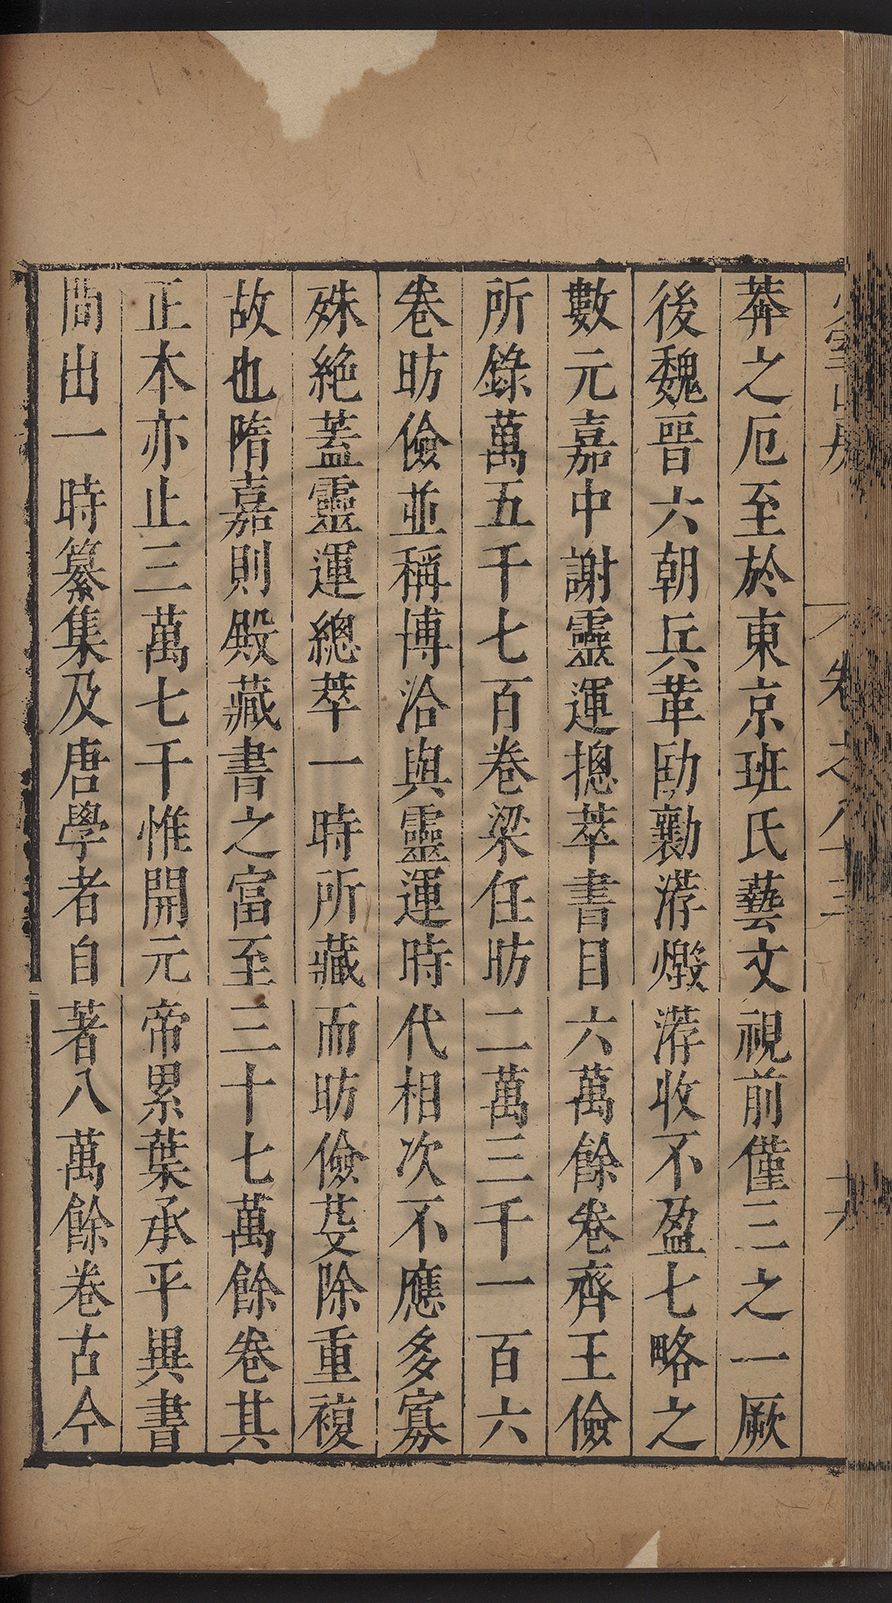 莽之厄至於東京班氏藝文視前僅三之一厥
後魏晉六朝兵革勷洊燬洊收不盈七略之
數元嘉中謝靈運摠萃書目六萬餘卷齊王儉
所錄萬五千七百卷梁任昉二萬三千一百六
卷昉儉並稱博洽與靈運時代相次不應多寡
殊絶蓋靈運總萃一時所藏而昉儉芟除重複
故也隋嘉則殿藏書之富至三十七萬餘卷其
正本亦止三萬七千惟開元帝累葉承平異書
間出一時纂集及唐學者自著八萬餘卷古今